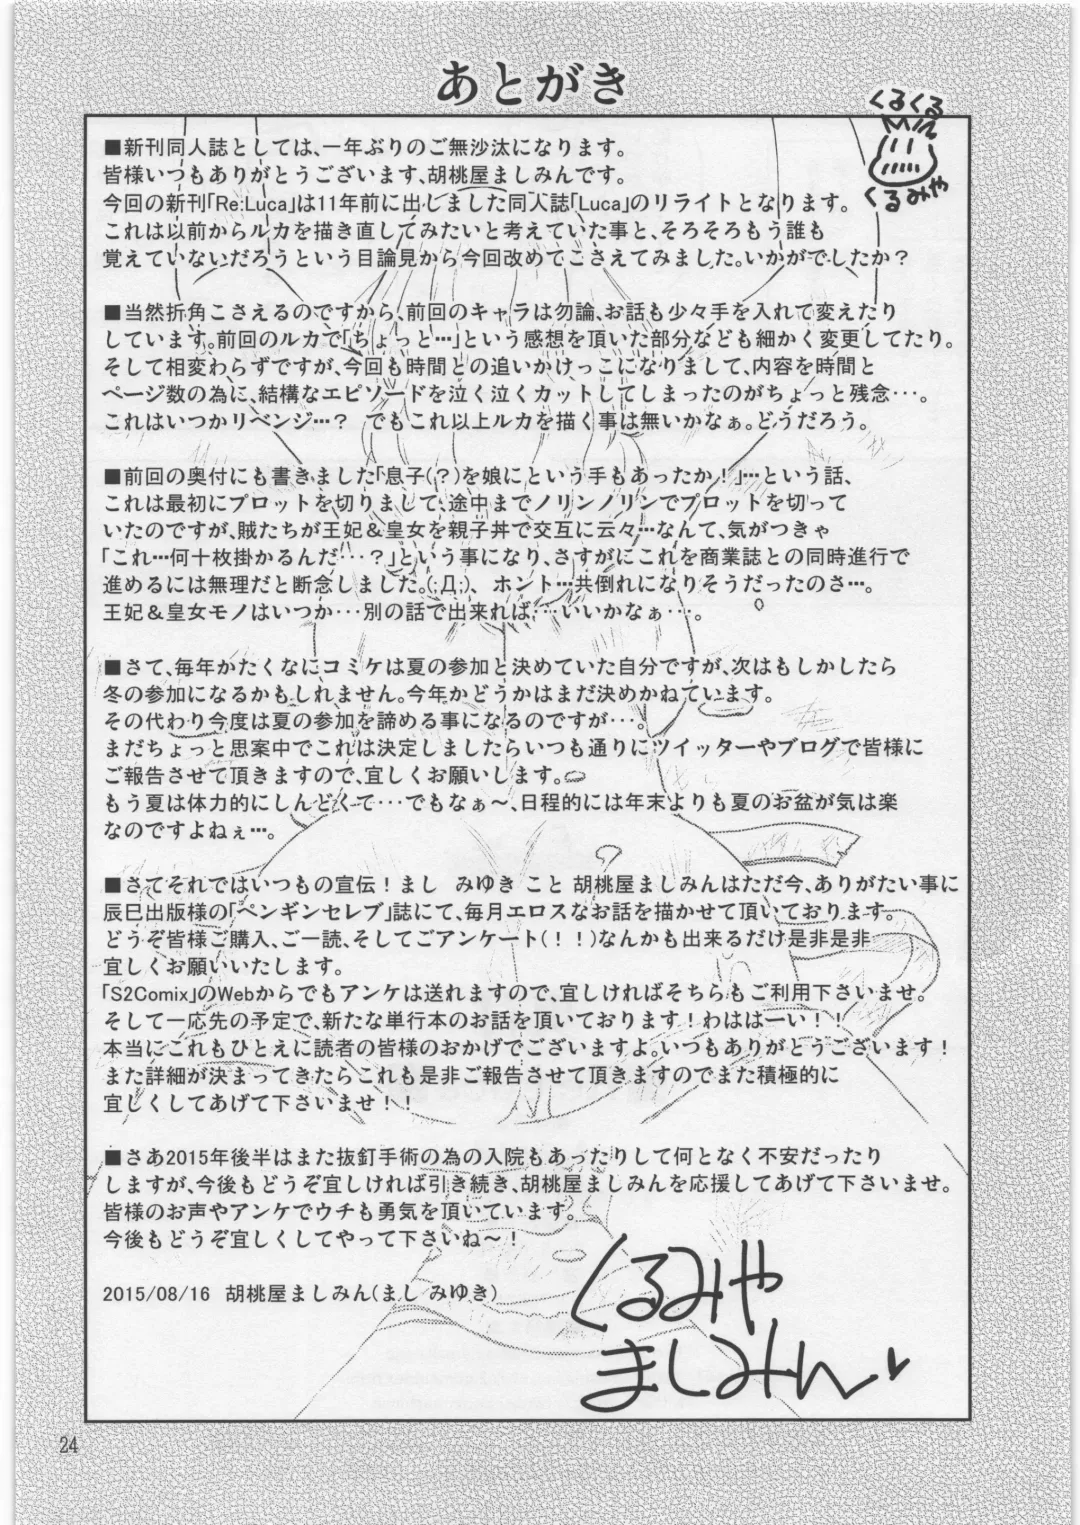 あとがき
くるくる
MIN
くるみや
■新刊同人誌としては、一年ぶりのご無沙汰になります。
皆様いつもありがとうございます、胡桃屋ましみんです。
今回の新刊「Re:Luca」は11年前に出しました同人誌「Luca」のリライトとなります。
これは以前からルカを描き直してみたいと考えていた事と、そろそろもう誰も
覚えていないだろうという目論見から今回改めてこさえてみました。いかがでしたか？
■当然折角こさえるのですから、前回のキャラは勿論、お話も少々手を入れて変えたり
しています。前回のルカで「ちょっと…」という感想を頂いた部分なども細かく変更してたり。
そして相変わらずですが、今回も時間との追いかけっこになりまして、内容を時間と
ページ数の為に、結構なエピソードを泣く泣くカットしてしまったのがちょっと残念･･･。
これはいつかリベンジ…？　でもこれ以上ルカを描く事は無いかなぁ。どうだろう。
■前回の奥付にも書きました「息子(？)を娘にという手もあったか！」…という話、
これは最初にプロットを切りまして、途中までノリンノリンでプロットを切って
いたのですが、賊たちが王妃＆皇女を親子丼で交互に云々…なんて、気がつきゃ
「これ…何十枚掛かるんだ･･･？」という事になり、さすがにこれを商業誌との同時進行で
進めるには無理だと断念しました。(;Д;)、 ホント…共倒れになりそうだったのさ…。
王妃＆皇女モノはいつか･･･別の話で出来れば･･･いいかなぁ･･･。
■さて、毎年かたくなにコミケは夏の参加と決めていた自分ですが、次はもしかしたら
冬の参加になるかもしれません。今年かどうかはまだ決めかねています。
その代わり今度は夏の参加を諦める事になるのですが･･･。
まだちょっと思案中でこれは決定しましたらいつも通りにツイッターやブログで皆様に
ご報告させて頂きますので、宜しくお願いします。
もう夏は体力的にしんどくて･･･でもなぁ～、日程的には年末よりも夏のお盆が気は楽
なのですよねぇ…。
■さてそれではいつもの宣伝！まし　みゆき こと 胡桃屋ましみんはただ今、ありがたい事に
辰巳出版様の「ペンギンセレブ」誌にて、毎月エロスなお話を描かせて頂いております。
どうぞ皆様ご購入、ご一読、そしてごアンケート(！！)なんかも出来るだけ是非是非
宜しくお願いいたします。
「S2Comix」のWebからでもアンケは送れますので、宜しければそちらもご利用下さいませ。
そして一応先の予定で、新たな単行本のお話を頂いております！わははーい！！
本当にこれもひとえに読者の皆様のおかげでございますよ。いつもありがとうございます！
また詳細が決まってきたらこれも是非ご報告させて頂きますのでまた積極的に
宜しくしてあげて下さいませ！！
■さあ2015年後半はまた抜釘手術の為の入院もあったりして何となく不安だったり
しますが、今後もどうぞ宜しければ引き続き、胡桃屋ましみんを応援してあげて下さいませ。
皆様のお声やアンケでウチも勇気を頂いています。
今後もどうぞ宜しくしてやって下さいね～！
2015/08/16 胡桃屋ましみん(まし みゆき)
くるみや
ましみん♥
24